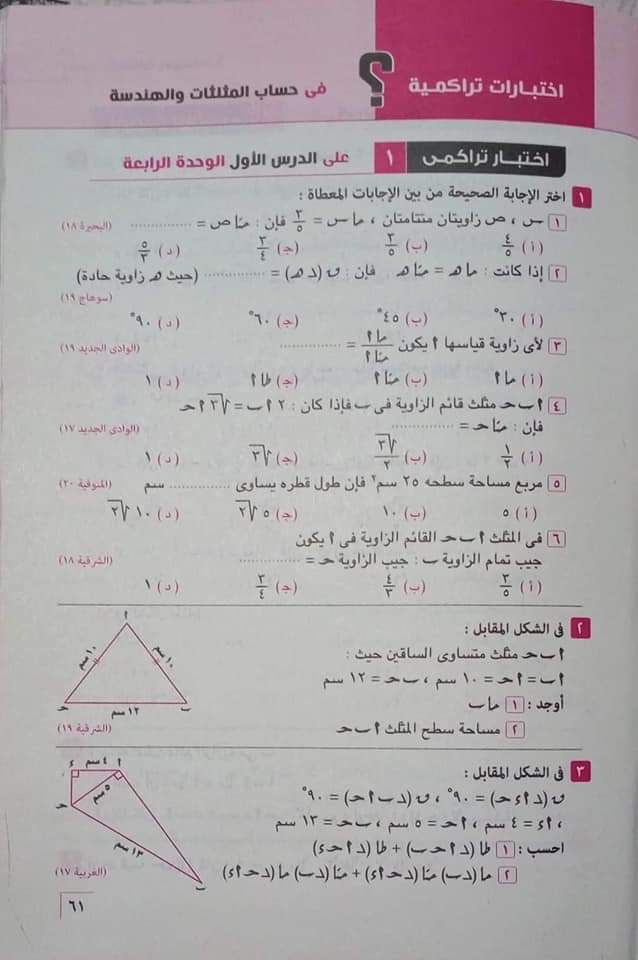 اختبارات تراكمية ؟ فى حساب المثلثات والهندسة
اختبار تراكمى ١ على الدرس الأول الوحدة الرابعة
١ اختر الإجابة الصحيحة من بين الإجابات المعطاة :
١ س ، ص زاويتان متتامتان ، ما س = ٣/٥ فإن : منا ص = .............. (البحيرة ١٨)
(أ) ٤/٥ (ب) ٣/٥ (جـ) ٣/٤ (د) ٥/٣
٢ إذا كانت : ما هـ = منا هـ فإن : ق (د هـ) = .............. (حيث هـ زاوية حادة)
(سوهاج ١٩)
(أ) ٣٠° (ب) ٤٥° (جـ) ٦٠° (د) ٩٠°
٣ لأى زاوية قياسها أ يكون ما أ/منا أ = .............. (الوادى الجديد ١٩)
(أ) ما أ (ب) منا أ (جـ) طا أ (د) ١
٤ أ ب حـ مثلث قائم الزاوية فى ب فإذا كان : ٢ أ ب = √٣ أ حـ
فإن : منا حـ = .............. (الوادى الجديد ١٧)
(أ) ١/٢ (ب) √٣/٢ (جـ) √٣ (د) ١
٥ مربع مساحة سطحه ٢٥ سم٢ فإن طول قطره يساوى .............. سم (المنوفية ٢٠)
(أ) ٥ (ب) ١٠ (جـ) ٥√٢ (د) ١٠√٢
٦ فى المثلث أ ب حـ القائم الزاوية فى أ يكون
جيب تمام الزاوية ب : جيب الزاوية حـ = .............. (الشرقية ١٨)
(أ) ٣/٥ (ب) ٤/٣ (جـ) ٣/٤ (د) ١
٢ فى الشكل المقابل :
أ ب حـ مثلث متساوى الساقين حيث :
أ ب = أ حـ = ١٠ سم ، ب حـ = ١٢ سم
أوجد : ١ ما ب
٢ مساحة سطح المثلث أ ب حـ (الشرقية ١٩)
أ
١٠ سم
١٠ سم
حـ ١٢ سم ب
٣ فى الشكل المقابل :
ق (د أ ء حـ) = ٩٠° ، ق (د ب أ حـ) = ٩٠°
، أ ء = ٤ سم ، أ حـ = ٥ سم ، ب حـ = ١٣ سم
احسب : ١ طا (د أ حـ ب) + طا (د أ حـ ء)
٢ ما (د ب) منا (د حـ أ ء) + منا (د ب) ما (د حـ أ ء) (الغربية ١٧)
ء ٤ سم أ
٥ سم
حـ
١٣ سم
ب
٦١